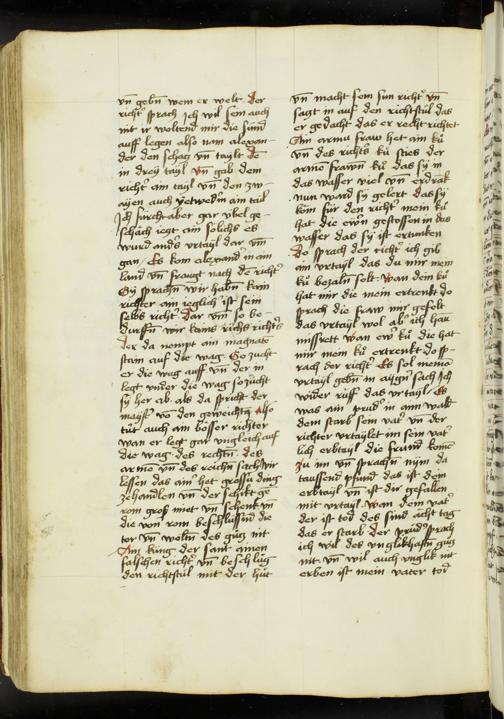 vn̄ gebn̄ wem er welt Der
richt᷑ sprach Jch wil sein auch
nit ir woltend mir die sünd
auff legen also nam alexan-
der den schacz vn̄ taylt dē
in dreÿ tayl Vn̄ gab dem
richt᷑ ain tayl vn̄ den zw
aÿen auch ÿetwedm̄ ain tail
Jch fürcht aber gar übel ge-
schäch iegt ain sölichs es
wurd and᷑s vrtayl dar vm̄
gan Es kom alexand᷑ in ain
land vn̄ fraugt nach dē richt᷑
Sÿ sprachn̄ wir habn̄ kain
richter ain ieglich᷑ ist sein
selbs richt᷑ Dar vm̄ so be-
durffn̄ wir kains richs richt᷑s
der da nempt ain magnete
stain auf die wag So zucht
er die wag auff vn̄ der in
legt vnder die wag so zücht
sÿ her ab als da spricht der
maÿst᷑ vō den gewechtn̄ Also
tüt auch ain böser richter
wan er legt gar vngleich auf
die wag des rechtn̄ des
armē vn̄ des reichn̄ sach wir
lesen das ain het grossü ding
zehandlen vn̄ der schikt ge
rom groß miet vn̄ schenk vn̄
die von rom beschlussn̄d die
tor vn̄ woltn̄ des gücz nit
Ain küng der sant ainen
falschen richt᷑ vn̄ beschlüg
den richtstül mit der hüt
vn̄ macht sein sun richt᷑ vn̄
saczt in auf den richtstül das
er gedächt das er recht richtet
Ain armü fraw het ain kü
vn̄ des richt᷑s kü sties der
armē frawn̄ kü das sÿ in
das wasser viel vn̄ ertrāk
nun ward sÿ gelert das sÿ
köm für den richt᷑ mein kü
hat die ewr̄n gestossen in das
wasser das sÿ ist ertunken
Do sprach der richt᷑ ich gib
ain vrtayl das du mir mein
kü bezaln̄ solt Wan dein kü
hat mir die mein ertrenkt do
sprach die fraw mir gefelt
das vrtayl wol ab᷑ ich han
missrett wan ew᷑ kü die hat
mir mein kü ertrenkt do sp-
rach der richt᷑ Es sol niemē
vrtayl gebn̄ in aÿgn̄ sach Jch
wider rüff das vrtayl Es
was ain prüd᷑ in ainn wald
dem starb sein vat᷑ vn̄ der
richter vrtaylet im sein vat᷑
lich erbtayl die fraind komē
zu im vn̄ sprachn̄ nÿm da
taussend pfund das ist dein
erbtayl vn̄ ist dir gefallen
mit vrtayl Wan dein vat᷑
der ist tod des sind acht tag
das er starb der prüd᷑ sprach
ich wil des vnglükhaftn̄ gücz
nit vn̄ wil auch vnglük nit
erben ist mein vater tod